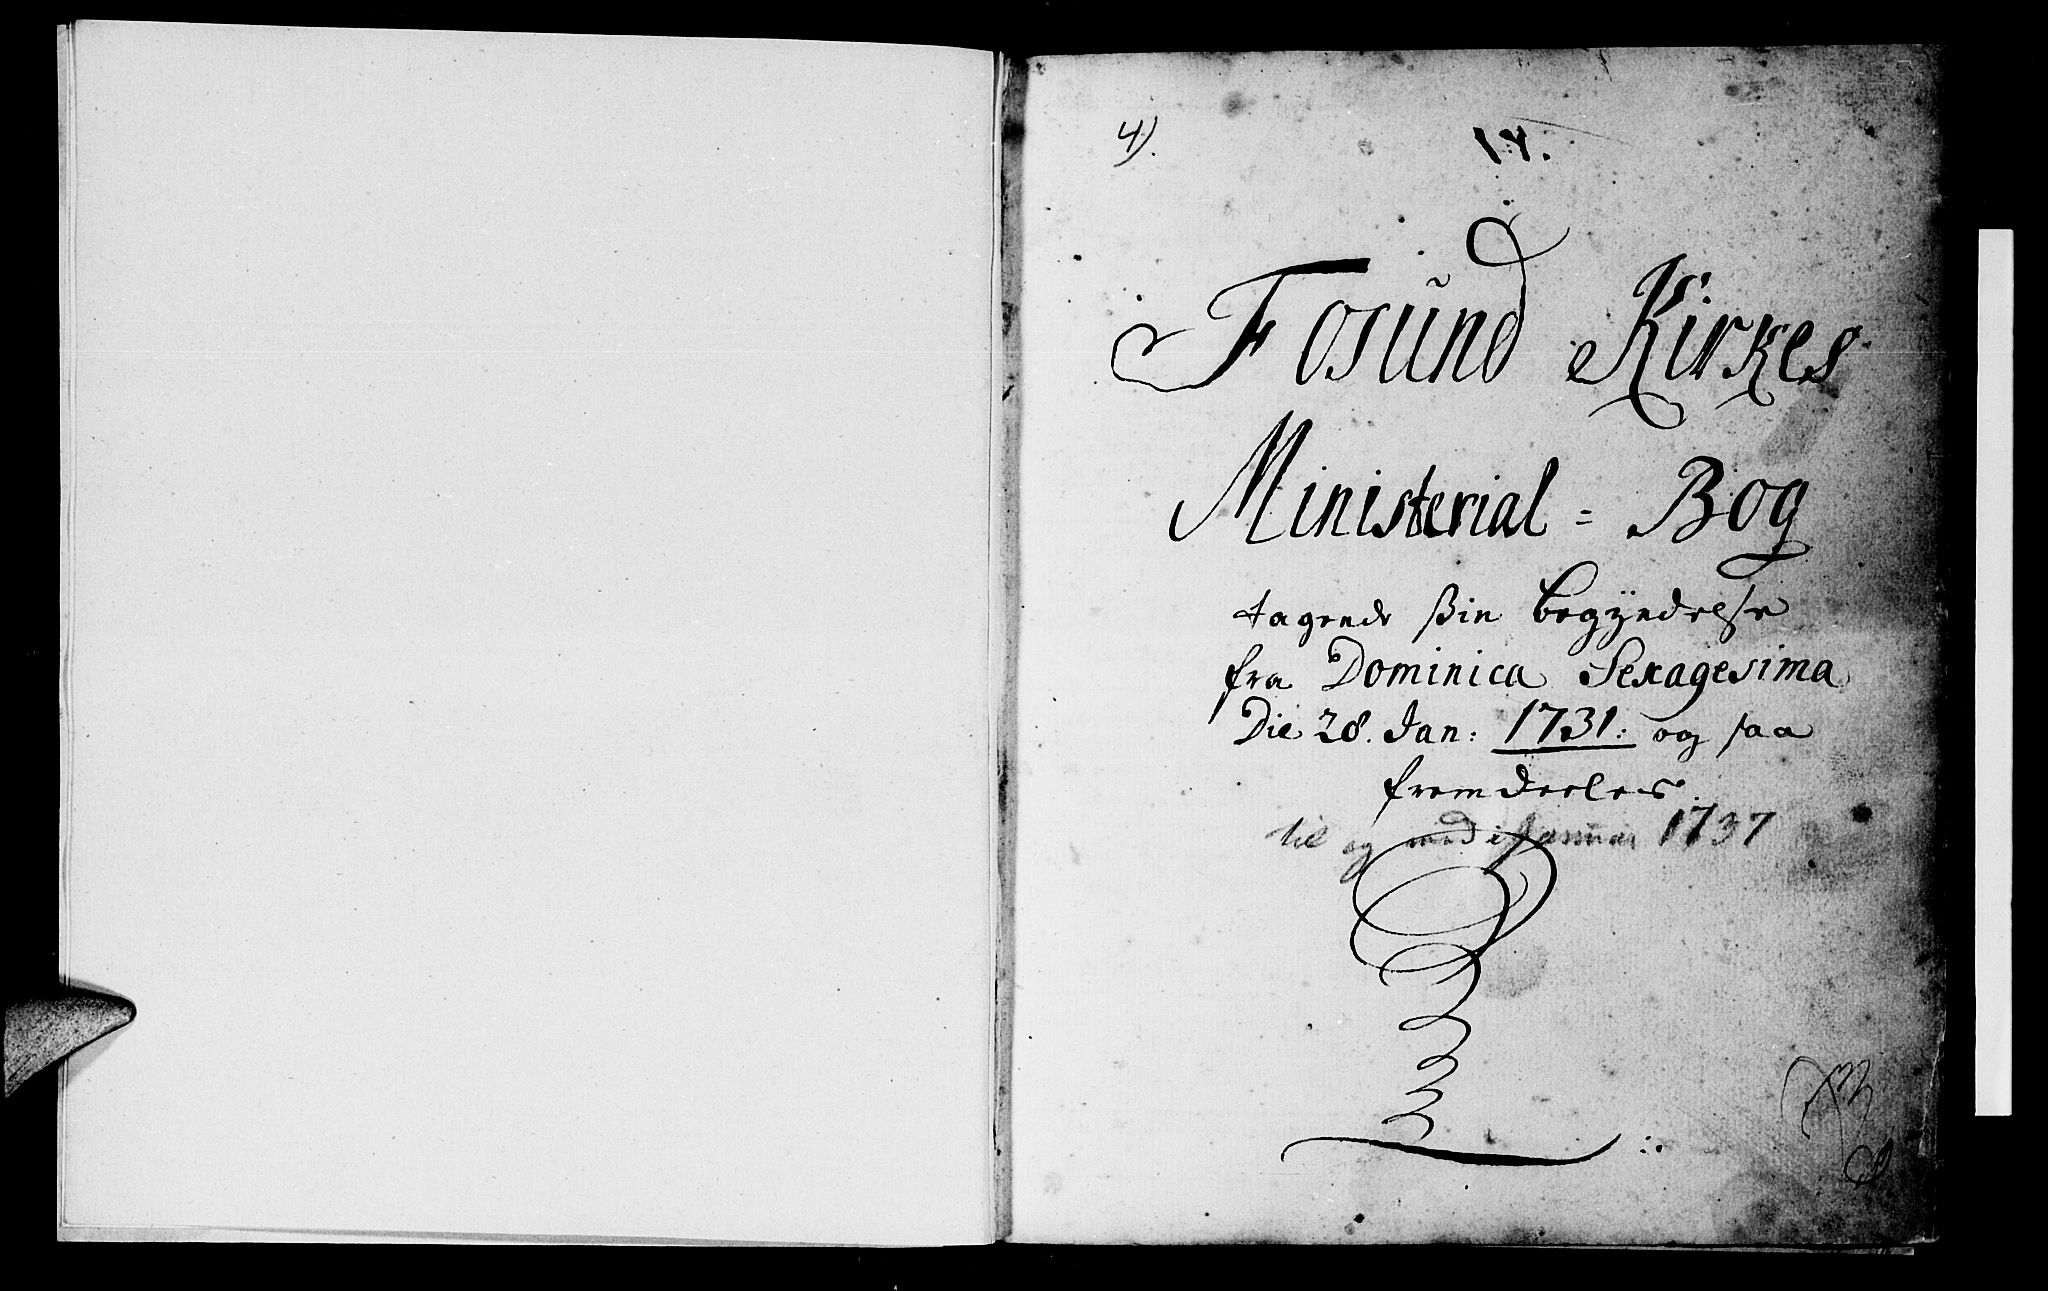 4).
14.
Fosund Kirkes
Ministerial = Bog
tagende sin begÿndelse
fra Dominica Sexagesima
Die 28. Jan: 1731: og saa
fremdeeles
til og med Januar 1737